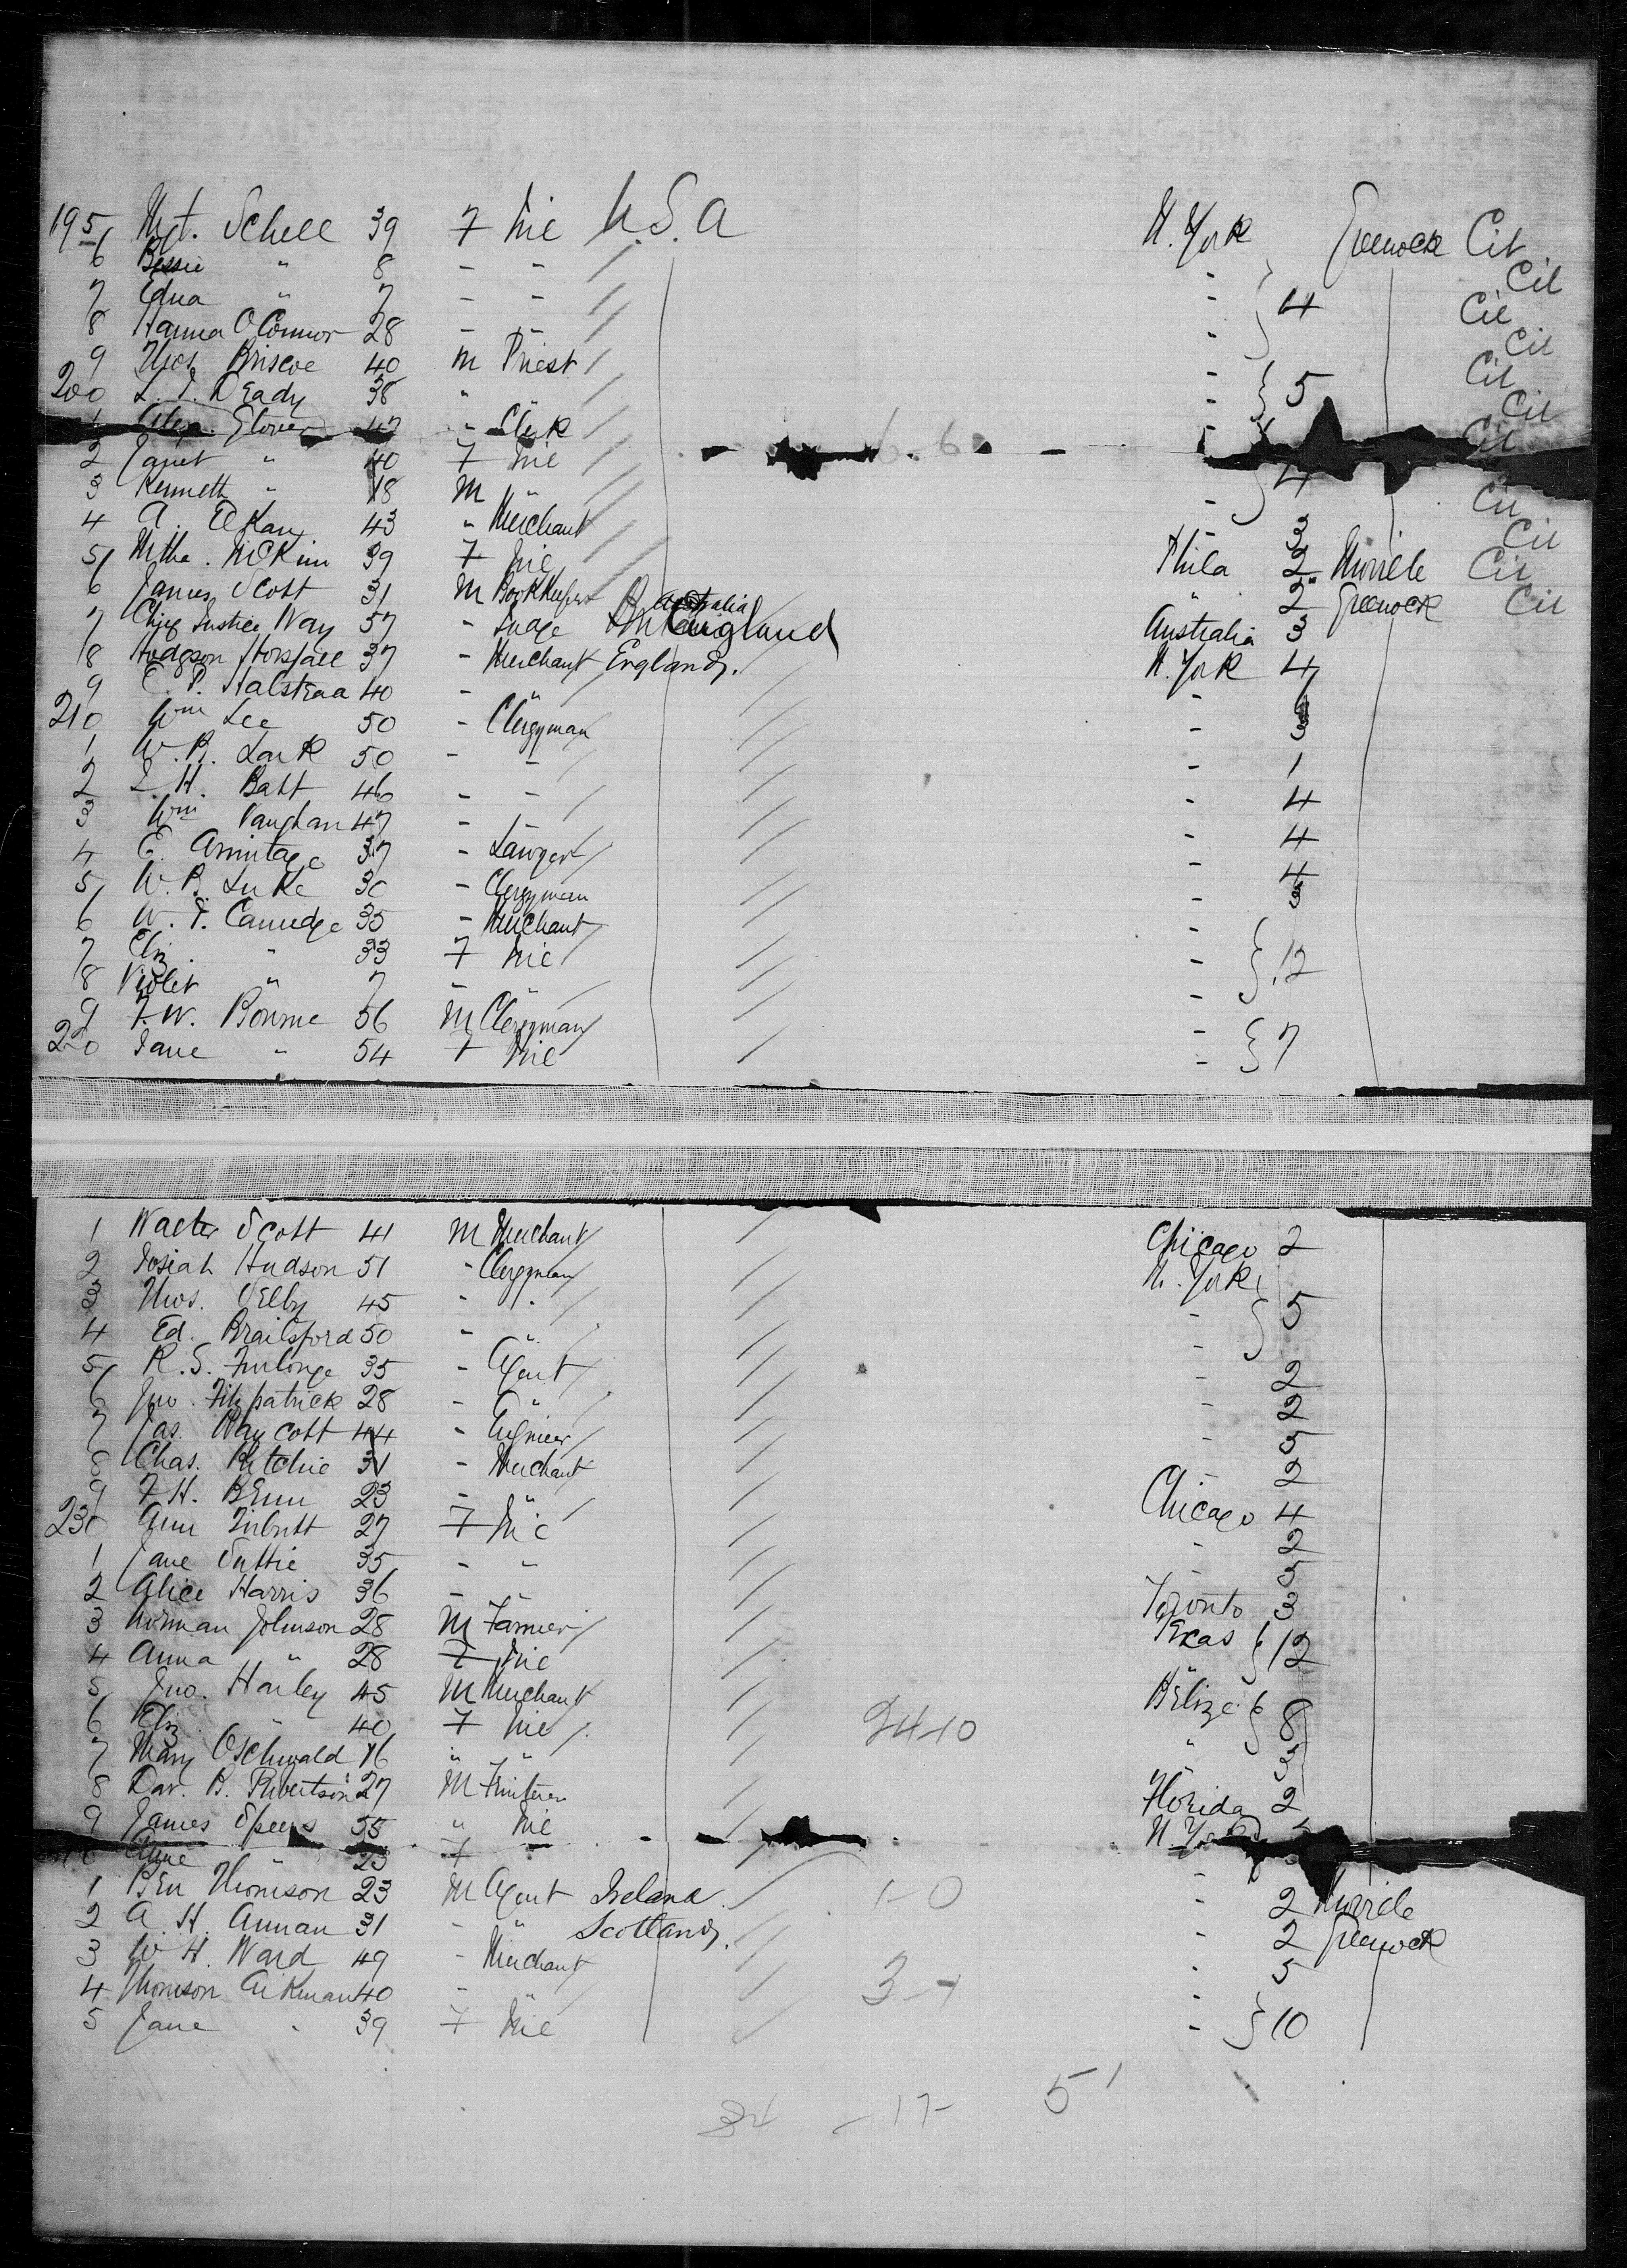 195 Mgt. Schell 39 F Nil U.S.A N. York Greenock Cit
6 Bessie " 8 - - Cit
7 Edna " 7 - - 4 Cit
8 Hanna O'Connor 28 - - Cit
9 Thos. Briscoe 40 M Priest - Cit
200 L. J. Deady 38 " - 5 Cit
1 Alex. Glover 47 - Clerk - Cit
2 Janet " 40 F Nil
3 Kenneth " 18 M " - 4 Cit
4 A. Elkan 43 " Merchant 3 Cit
5 McKim 39 F Nil Phila 2 Moville Cit
6 James Scott 31 M Bookkeeper " 2 Greenock Cit
7 Chief Justice Way 57 - Judge Australia England Australia 3
8 Hodgson Horsfall 37 - Merchant England. N. York 4
9 E. P. Halstead 40 - "
210 Wm Lee 50 - Clergyman - 3
1 W. R. Lark 50 - - - 1
2 L. H. Batt 46 - - - 4
3 Wm Vaughan 47 - - - 4
4 E. Armitage 37 - Lawyer - 4
5 W. B. Luke 30 - Clergyman - 3
6 W. F. Camidge 35 - Merchant -
7 Eliz. " 33 F Nil - 12
8 Violet " 7 - " -
9 F. W. Bourne 56 M Clergyman -
220 Jane " 54 F Nil - 7
1 Walter Scott 41 M Merchant Chicago 2
2 Josiah Hudson 51 - Clergyman N. York
3 Thos. Selby 45 - " - 5
4 Ed. Brailsford 50 - " -
5 R. S. Furlonge 35 - Agent - 2
6 Jno. Fitzpatrick 28 - " - 2
7 Jas. Waycott 44 - Engineer - 5
8 Chas. Ritchie 31 - Merchant - 2
9 F. H. Benn 23 - " Chicago 4
230 Ann Tributt 27 F Nil - 2
1 Jane Suttie 35 - - - 5
2 Alice Harris 36 - - Toronto 3
3 Norman Johnson 28 M Farmer Texas 12
4 Anna " 28 F Nil
5 Jno. Harley 45 M Merchant Belize
6 Eliz. " 40 F Nil 24-10 8
7 Mary Oschwald 16 " " " 3
8 Dav. B. Robertson 27 M Fruiterer Florida 2
9 James Speers 35 " Nil N. York
Anne " 23 F
1 Ben Thomson 23 M Agent Ireland 1-0 - 2 Moville
2 A. H. Annan 31 - " Scotland. - 2 Greenock
3 W. H. Ward 49 - Merchant - 5
4 Thomson Aikman 40 - " 3-1 -
5 Jane " 39 F Nil - 10
34 - 17- 51